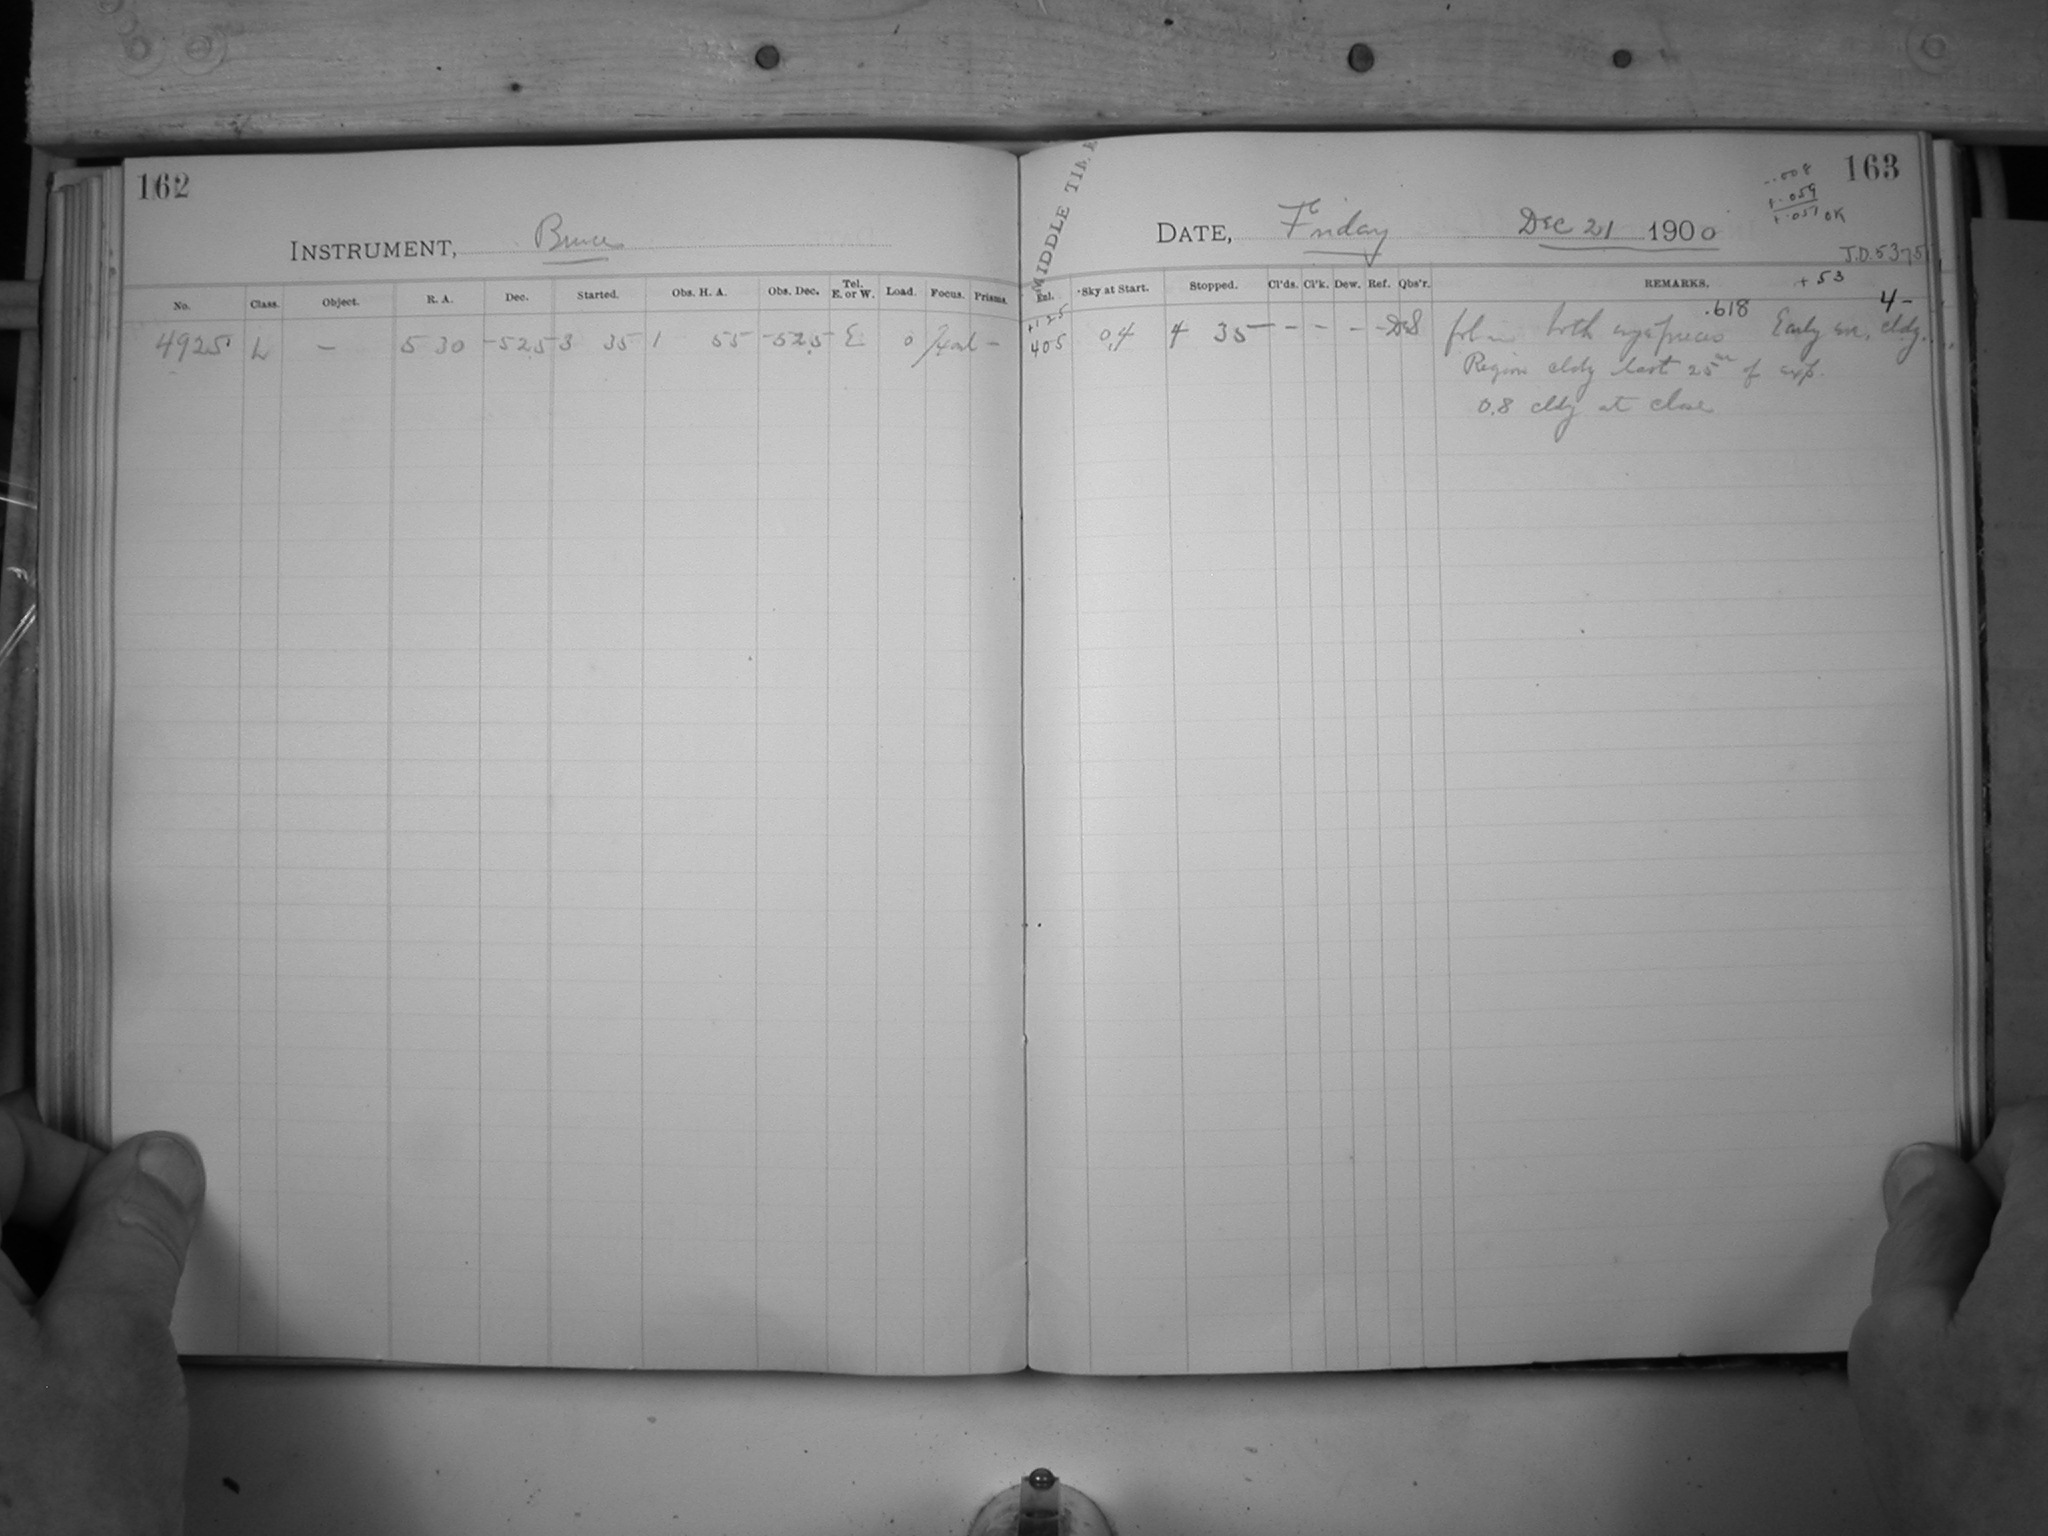 162
INSTRUMENT, Bruce
No. Class. Object. R. A. Dec. Started. Obs. H. A. Obs. Dec. Tel. E. or W. Load. Focus. Prisms.
4925 L – 5 30 -52.5 3 35 1 55 -52.5 E 0 –
MIDDLE TIM
163
-.008
+.059
+.051 OK
DATE, Friday Dec 21 1900
J.D. 5375
Exl. Sky at Start. Stopped. Cl'ds. Cl'k. Dew. Ref. Obs'r. REMARKS. +53
+125 .618 4-
405 0.4 4 35 – – – – DeS both eyepieces Early eve. cldy.
Region cldy last 25m of exp.
0.8 cldy at close